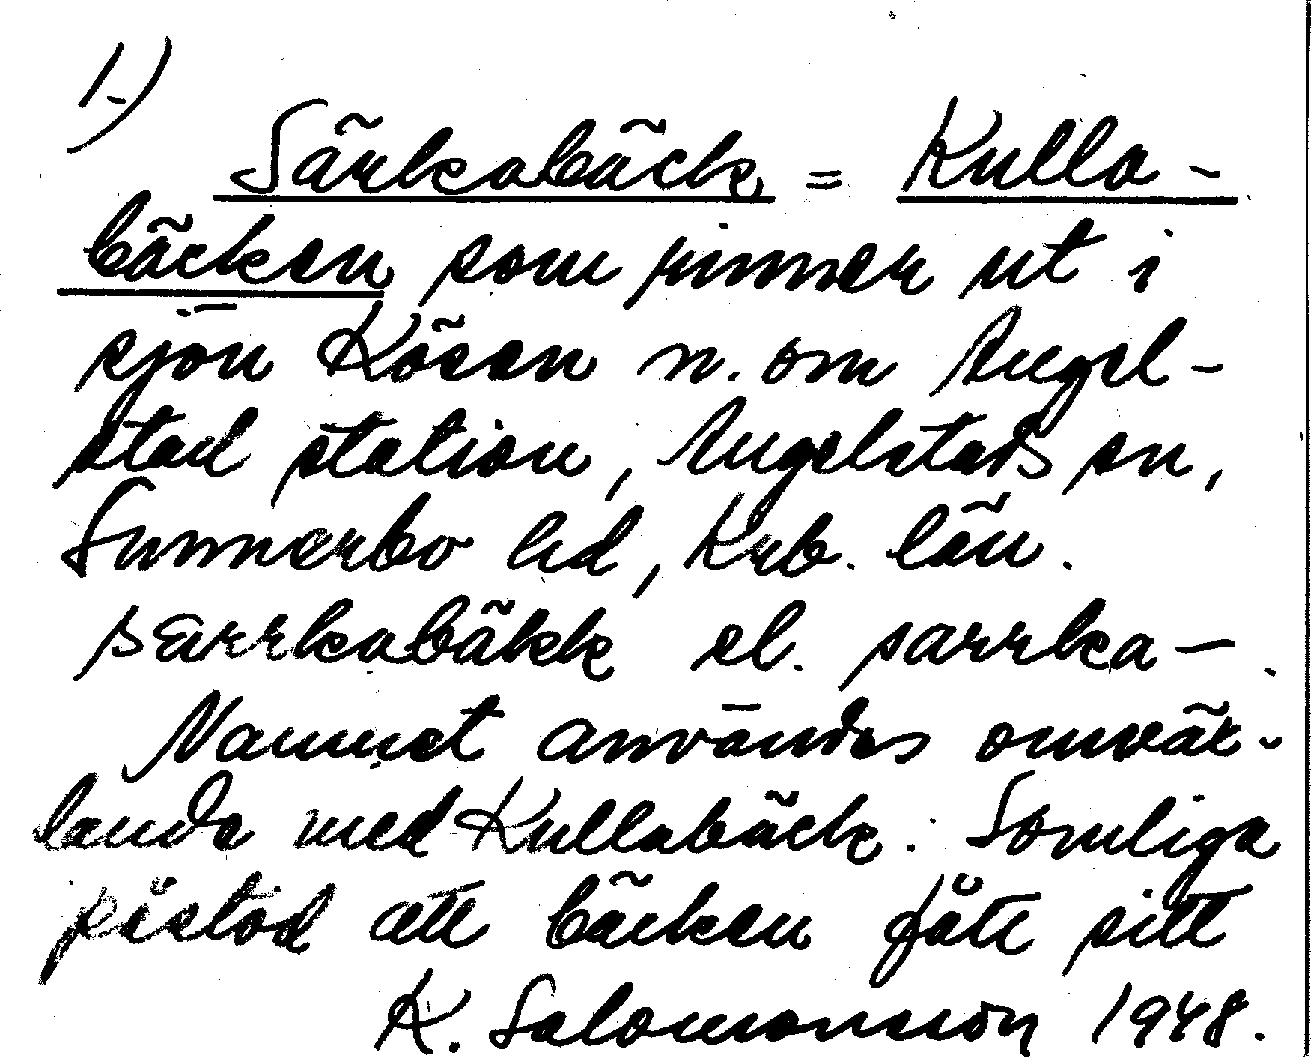 1.)
Särkabäck = Kulla-
bäcken som rinner ut i
sjön Kösen n. om Angel-
stad station, Angelstads sn,
Sunnerbo hd, Krb. län.
särrkabäkk el. sarrka-.
Namnet användes omväx-
lande med Kullabäck. Somliga
påstod att bäcken fått sitt
K. Salomonsson 1948.